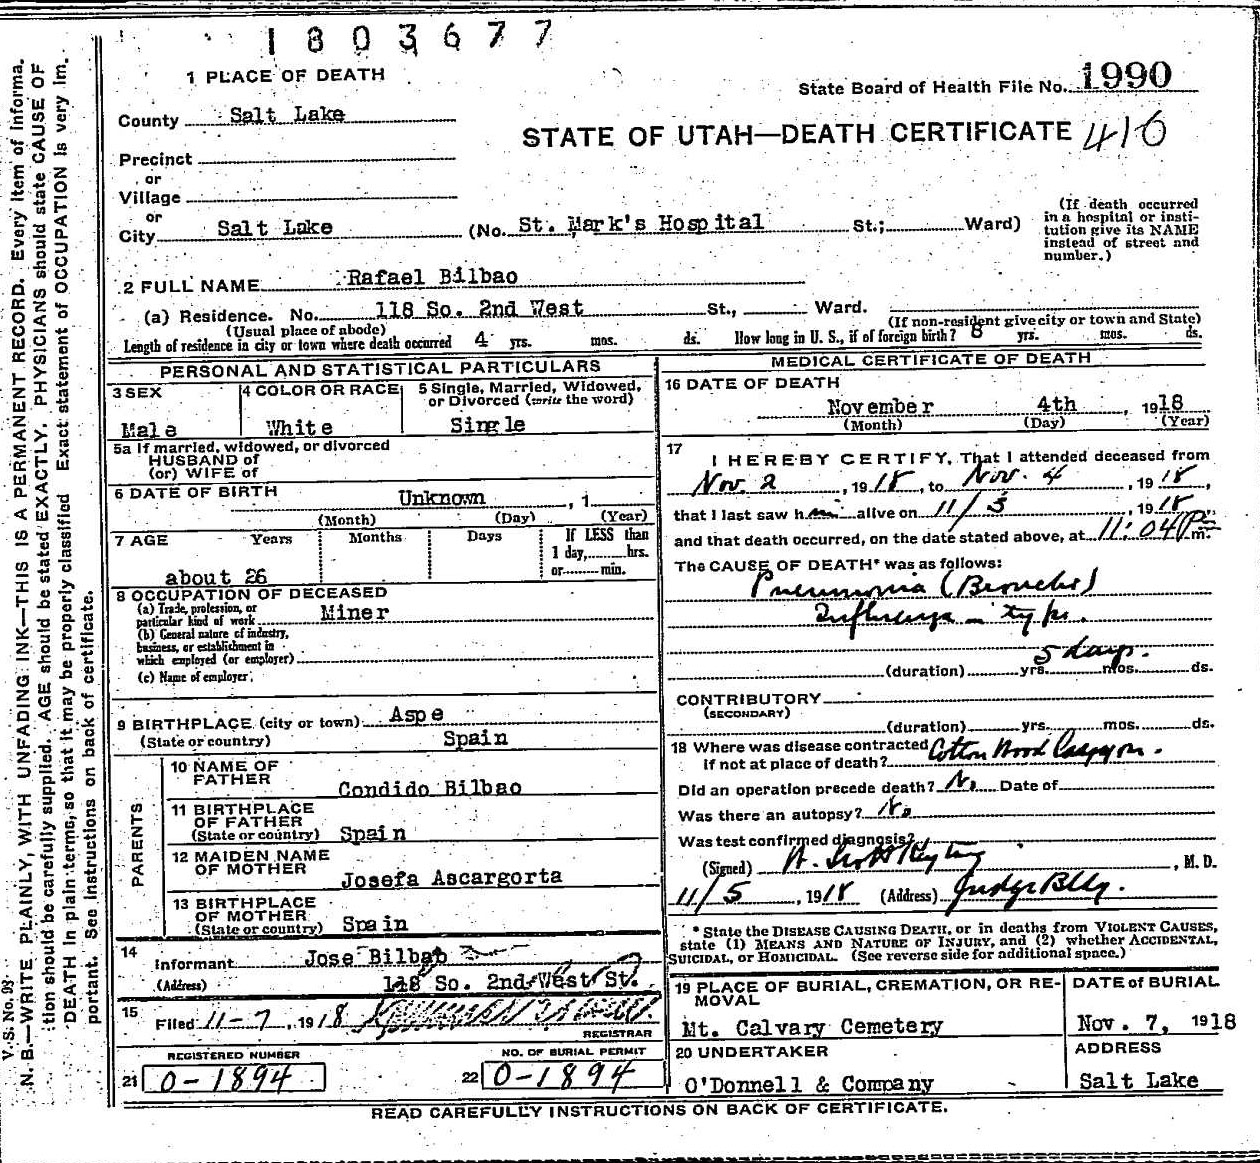 1803677
1 PLACE OF DEATH
State Board of Health File No. 1990
County Salt Lake
STATE OF UTAH—DEATH CERTIFICATE 416
Precinct
or
Village
or
City Salt Lake (No. St. Mark's Hospital St.; Ward)
(If death occurred
in a hospital or insti-
tution give its NAME
instead of street and
number.)
2 FULL NAME Rafael Bilbao
(a) Residence. No. 118 So. 2nd West St., Ward.
(Usual place of abode) (If non-resident give city or town and State)
Length of residence in city or town where death occurred 4 yrs. mos. ds. How long in U. S., if of foreign birth? 8 yrs. mos. ds.
PERSONAL AND STATISTICAL PARTICULARS
3 SEX 4 COLOR OR RACE 5 Single, Married, Widowed,
or Divorced (write the word)
Male White Single
5a If married, widowed, or divorced
HUSBAND of
(or) WIFE of
6 DATE OF BIRTH Unknown , 1
(Month) (Day) (Year)
7 AGE Years Months Days If LESS than
1 day, hrs.
or min.
about 26
8 OCCUPATION OF DECEASED
(a) Trade, profession, or
particular kind of work Miner
(b) General nature of industry,
business, or establishment in
which employed (or employer)
(c) Name of employer
9 BIRTHPLACE (city or town) Aspe
(State or country) Spain
PARENTS
10 NAME OF
FATHER Condido Bilbao
11 BIRTHPLACE
OF FATHER
(State or country) Spain
12 MAIDEN NAME
OF MOTHER Josefa Ascargorta
13 BIRTHPLACE
OF MOTHER
(State or country) Spain
14
Informant Jose Bilbao
(Address) 118 So. 2nd West St.
15
Filed 11-7, 1918
REGISTRAR
REGISTERED NUMBER NO. OF BURIAL PERMIT
21 0-1894 22 0-1894
MEDICAL CERTIFICATE OF DEATH
16 DATE OF DEATH
November 4th , 1918
(Month) (Day) (Year)
17
I HEREBY CERTIFY, That I attended deceased from
Nov. 2, 1918, to Nov. 4, 1918,
that I last saw him alive on 11/3, 1918,
and that death occurred, on the date stated above, at 11:04 P m.
The CAUSE OF DEATH* was as follows:
Pneumonia (Broncho)
Influenza - type.
5 days.
(duration) yrs. mos. ds.
CONTRIBUTORY
(SECONDARY)
(duration) yrs. mos. ds.
18 Where was disease contracted Cotton Wood Canyon.
if not at place of death?
Did an operation precede death? No Date of
Was there an autopsy? No
Was test confirmed diagnosis?
(Signed) , M. D.
11/5, 1918 (Address) Judge Bldg.
* State the DISEASE CAUSING DEATH, or in deaths from VIOLENT CAUSES,
state (1) MEANS AND NATURE OF INJURY, and (2) whether ACCIDENTAL,
SUICIDAL, or HOMICIDAL. (See reverse side for additional space.)
19 PLACE OF BURIAL, CREMATION, OR RE-
MOVAL
Mt. Calvary Cemetery
DATE of BURIAL
Nov. 7, 1918
20 UNDERTAKER
O'Donnell & Company
ADDRESS
Salt Lake
READ CAREFULLY INSTRUCTIONS ON BACK OF CERTIFICATE.
V. S. No. 98
N. B.—WRITE PLAINLY, WITH UNFADING INK—THIS IS A PERMANENT RECORD. Every item of informa-
tion should be carefully supplied. AGE should be stated EXACTLY. PHYSICIANS should state CAUSE OF
DEATH in plain terms, so that it may be properly classified. Exact statement of OCCUPATION is very im-
portant. See instructions on back of certificate.